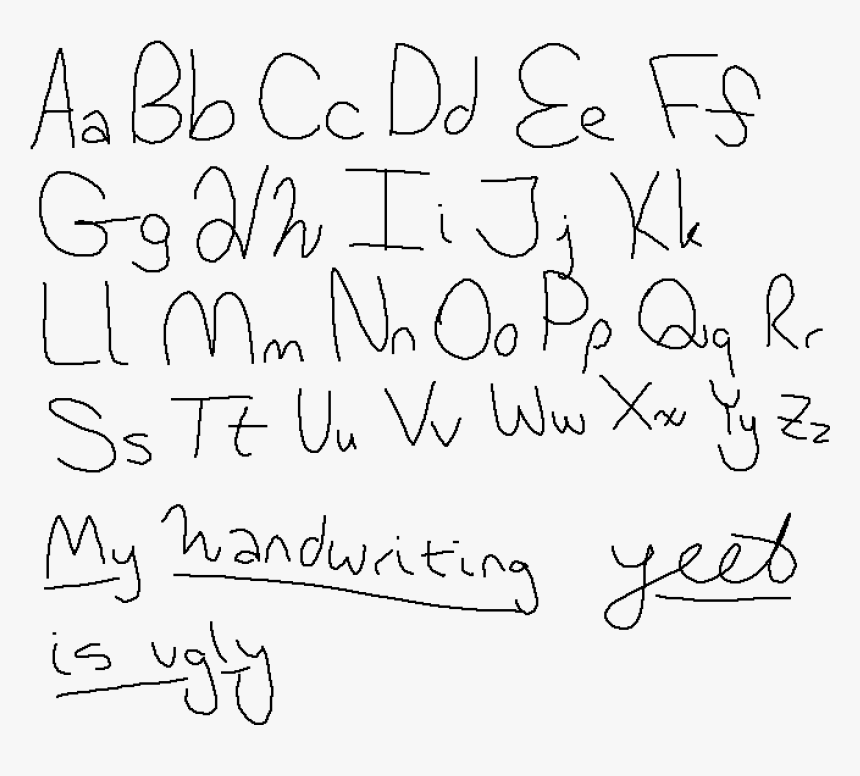 Aa Bb Cc Dd Ee Ff
Gg Hh Ii Jj Kk
Ll Mm Nn Oo Pp Qq Rr
Ss Tt Uu Vv Ww Xx Yy Zz
My handwriting yeet
is ugly